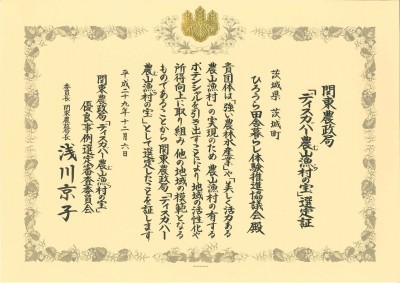 関東農政局
「ディスカバー農山漁村の宝」選定証
茨城県 茨城町
ひろうら田舎暮らし体験推進協議会 殿
貴団体は、「強い農林水産業」や「美しく活力ある
農山漁村」の実現のため 農山漁村の有する
ポテンシャルを引き出すことにより 地域の活性化や
所得向上に取り組み 他の地域の模範となる
ものであることから 関東農政局「ディスカバー
農山漁村の宝」として選定したことを証します
平成二十九年十二月六日
関東農政局「ディスカバー農山漁村の宝」
優良事例選定審査委員会
委員長 関東農政局長 浅川京子